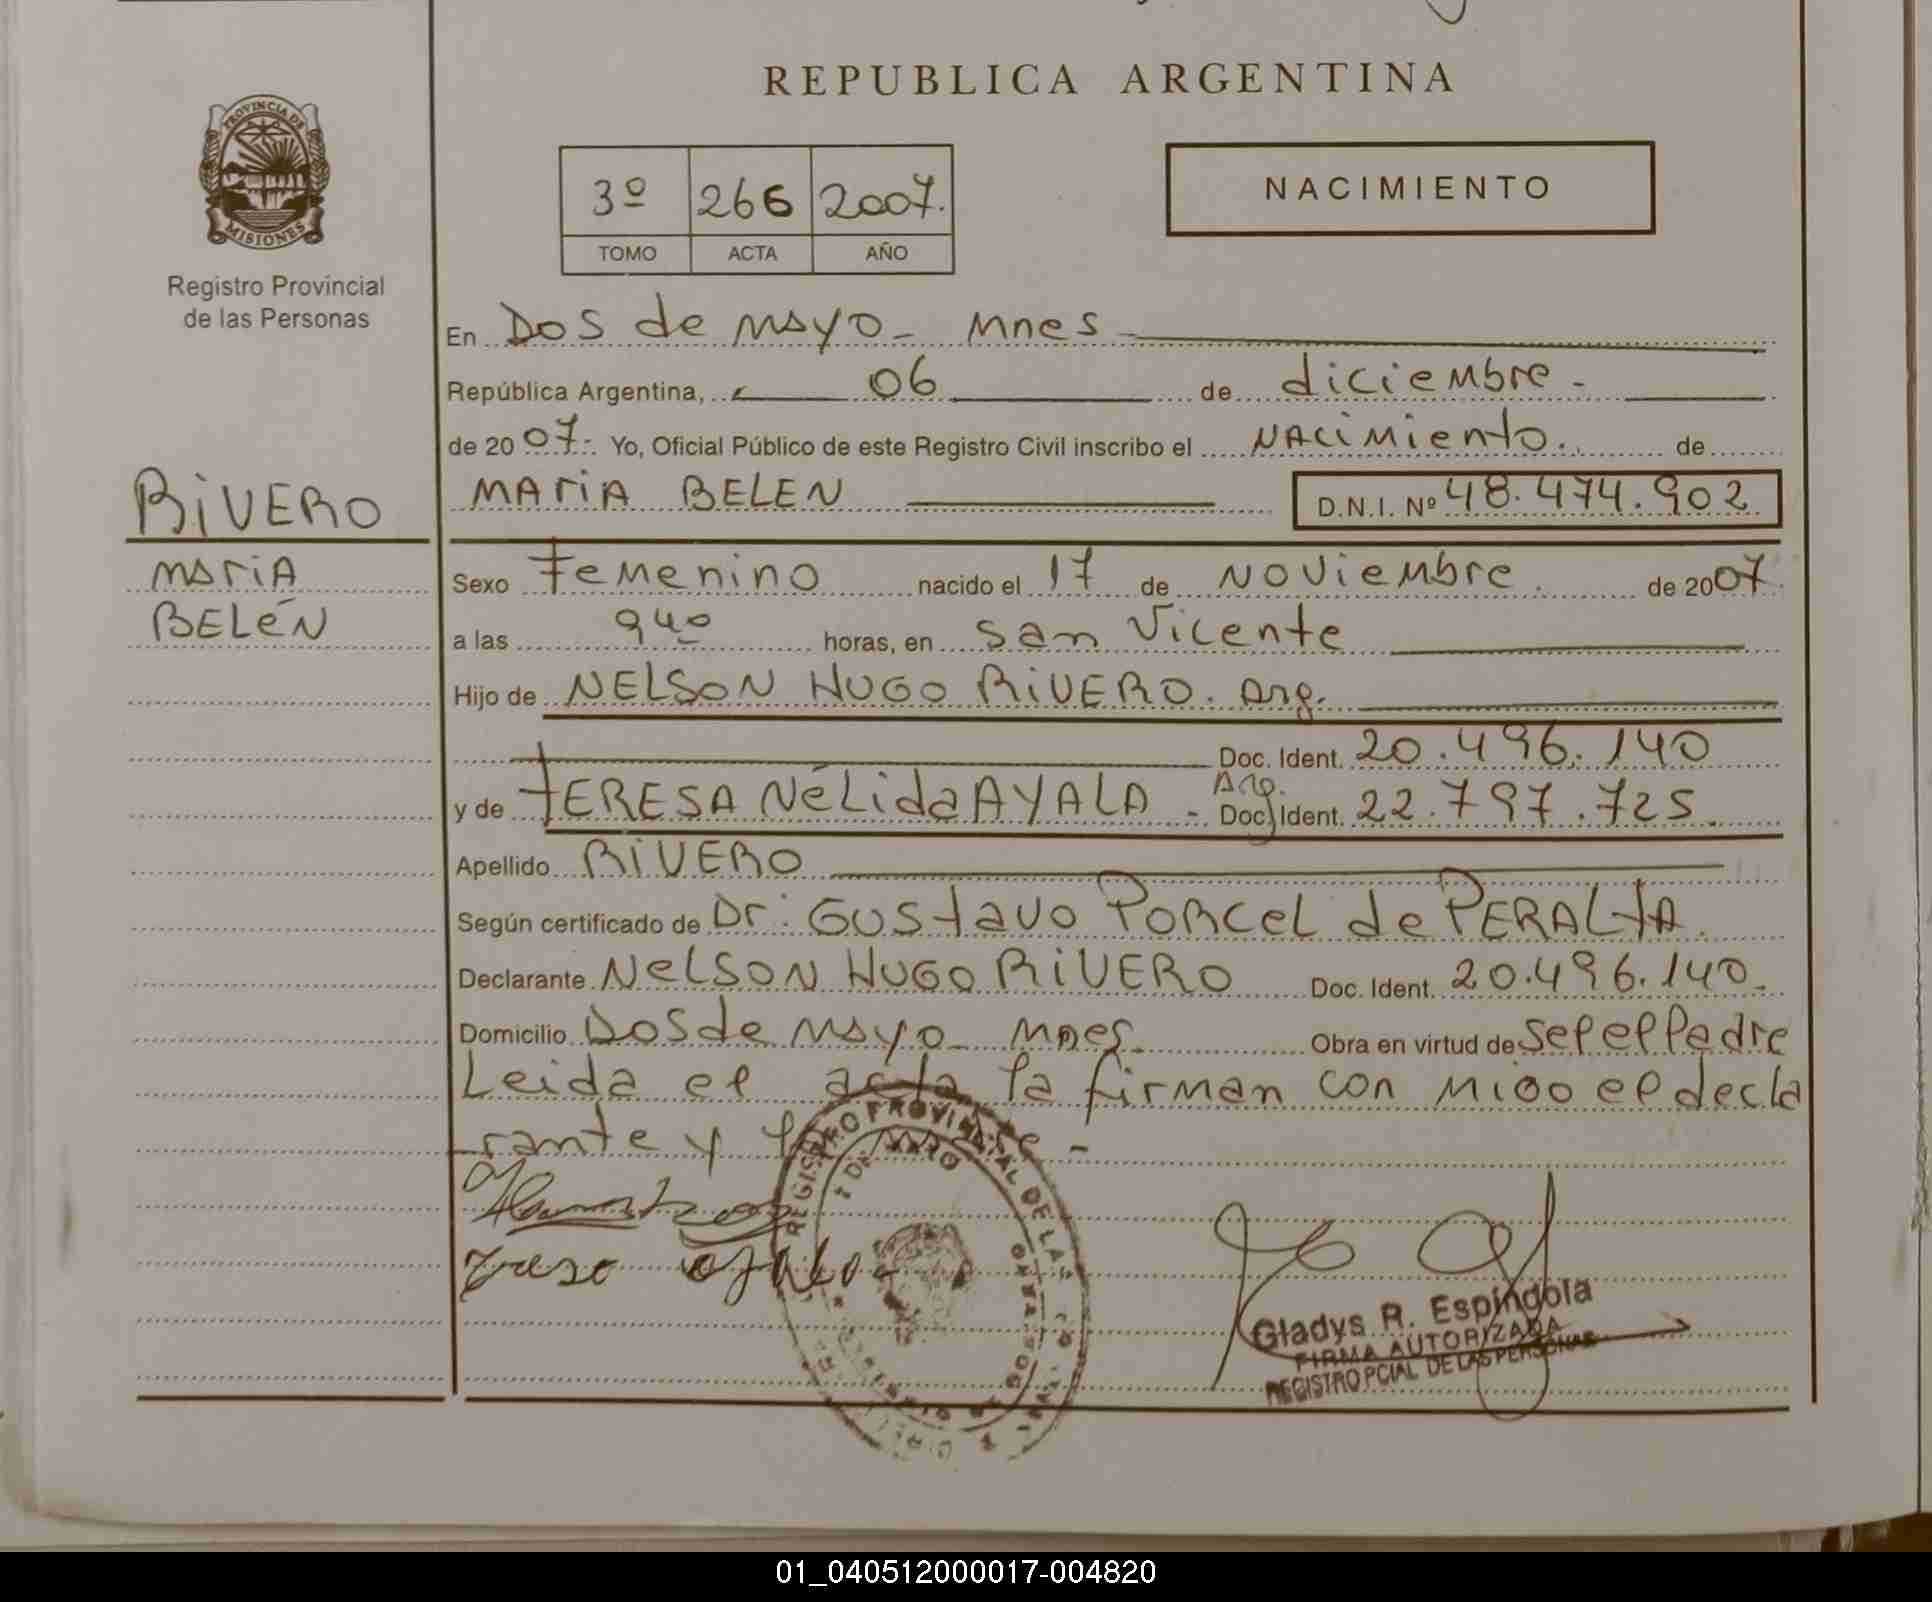 REPUBLICA ARGENTINA
PROVINCIA DE
MISIONES
Registro Provincial
de las Personas
3º 266 2007.
TOMO ACTA AÑO
NACIMIENTO
En Dos de mayo - Mnes
República Argentina, 06 de diciembre -
de 2007.- Yo, Oficial Público de este Registro Civil inscribo el NACIMIENTO. de
MARIA BELEN D.N.I. Nº 48.474.902
RIVERO
MARIA
BELÉN
Sexo Femenino nacido el 17 de NOViembre. de 2007
a las 9 40 horas, en San Vicente
Hijo de NELSON HUGO RIVERO. Arg.
Doc. Ident. 20.496.140
y de TERESA NéLida AYALA - Arg. Doc. Ident. 22.797.725
Apellido RIVERO
Según certificado de Dr: GUStavo PORCEL de PERALTA.
Declarante NELSON HUGO RIVERO Doc. Ident. 20.496.140.
Domicilio Dos de mayo - Mnes Obra en virtud de ser el Padre
Leida el acta la firman con migo el decla
rante y la -
REGISTRO PROVINCIAL DE LAS
2 DE MAYO
Gladys R. Espíndola
FIRMA AUTORIZADA
REGISTRO PCIAL DE LAS PERSONAS
01_040512000017-004820